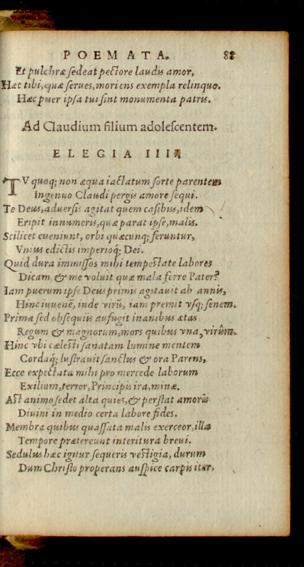 POEMATA. 88
Et pulchræ sedeat pectore laudis amor,
Hæc tibi, quæ serues, moriens exempla relinquo.
Hæc puer ipsa tui sint monumenta patris.
Ad Claudium filium adolescentem.
ELEGIA IIII.
TV quoq; non æqua iactatum sorte parentem
Ingenuo Claudi pergis amore sequi.
Te Deus, aduersis agitat quem casibus, idem
Eripit innumeris, quæ parat ipse, malis.
Scilicet eueniunt, orbi quæcunq; feruntur,
Vnius edictis imperioq; Dei.
Quid dura immissos mihi tempestate labores
Dicam, & me voluit quæ mala ferre Pater?
Iam puerum ipse Deus primis agitauit ab annis,
Hinc iuuenē, inde virū, iam premit vsq; senem.
Prima sed obsequiis aufugit inanibus ætas
Regum & magnorum, mors quibus vna, virûm.
Hinc vbi cælesti sanatam lumine mentem
Cordaq; lustrauit sanctus & ora Parens,
Ecce expectata mihi pro mercede laborum
Exilium, terror, Principis ira, minæ.
Ast animo sedet alta quies, & perstat amoris
Diuini in medio certa labore fides.
Membra quibus quassata malis exerceor, illa
Tempore prætereunt interitura breui.
Sedulus hæc igitur sequeris vestigia, durum
Dum Christo properans auspice carpis iter.